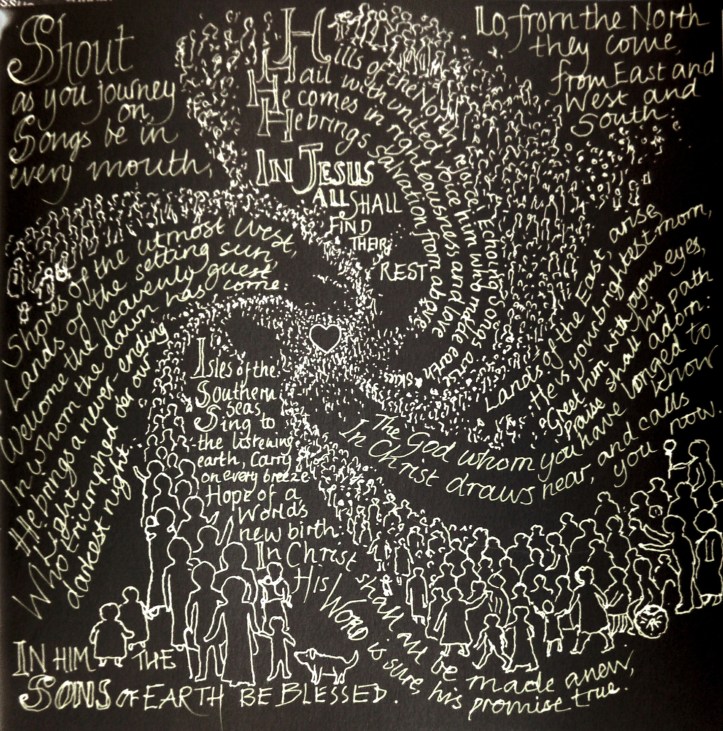 Shout
as you journey
on
Songs be in
every mouth,
Lo, from the North
they come,
from East and
West and
South.
Hills of the North, rejoice, Echoing songs arise
Hail with united voice him who made earth & skies
He comes in righteousness and love
He brings salvation from above.
IN JESUS
ALL SHALL
FIND
THEIR
REST
Shores of the utmost West
Lands of the setting sun
Welcome the heavenly guest
In whom the dawn has come
He brings a never ending
Light
Who triumphed o'er our
darkest night
Lands of the East, arise,
He is your brightest morn,
Greet him with joyous eyes,
Praise shall his path adorn:
The God whom you have longed to know
In Christ draws near, and calls you now
Isles of the
Southern
Seas,
Sing to
the listening
earth, Carry
on every breeze
Hope of a
Worlds
new birth:
In Christ shall all be made anew,
His Word is sure, his promise true.
IN HIM THE
SONS OF EARTH BE BLESSED.